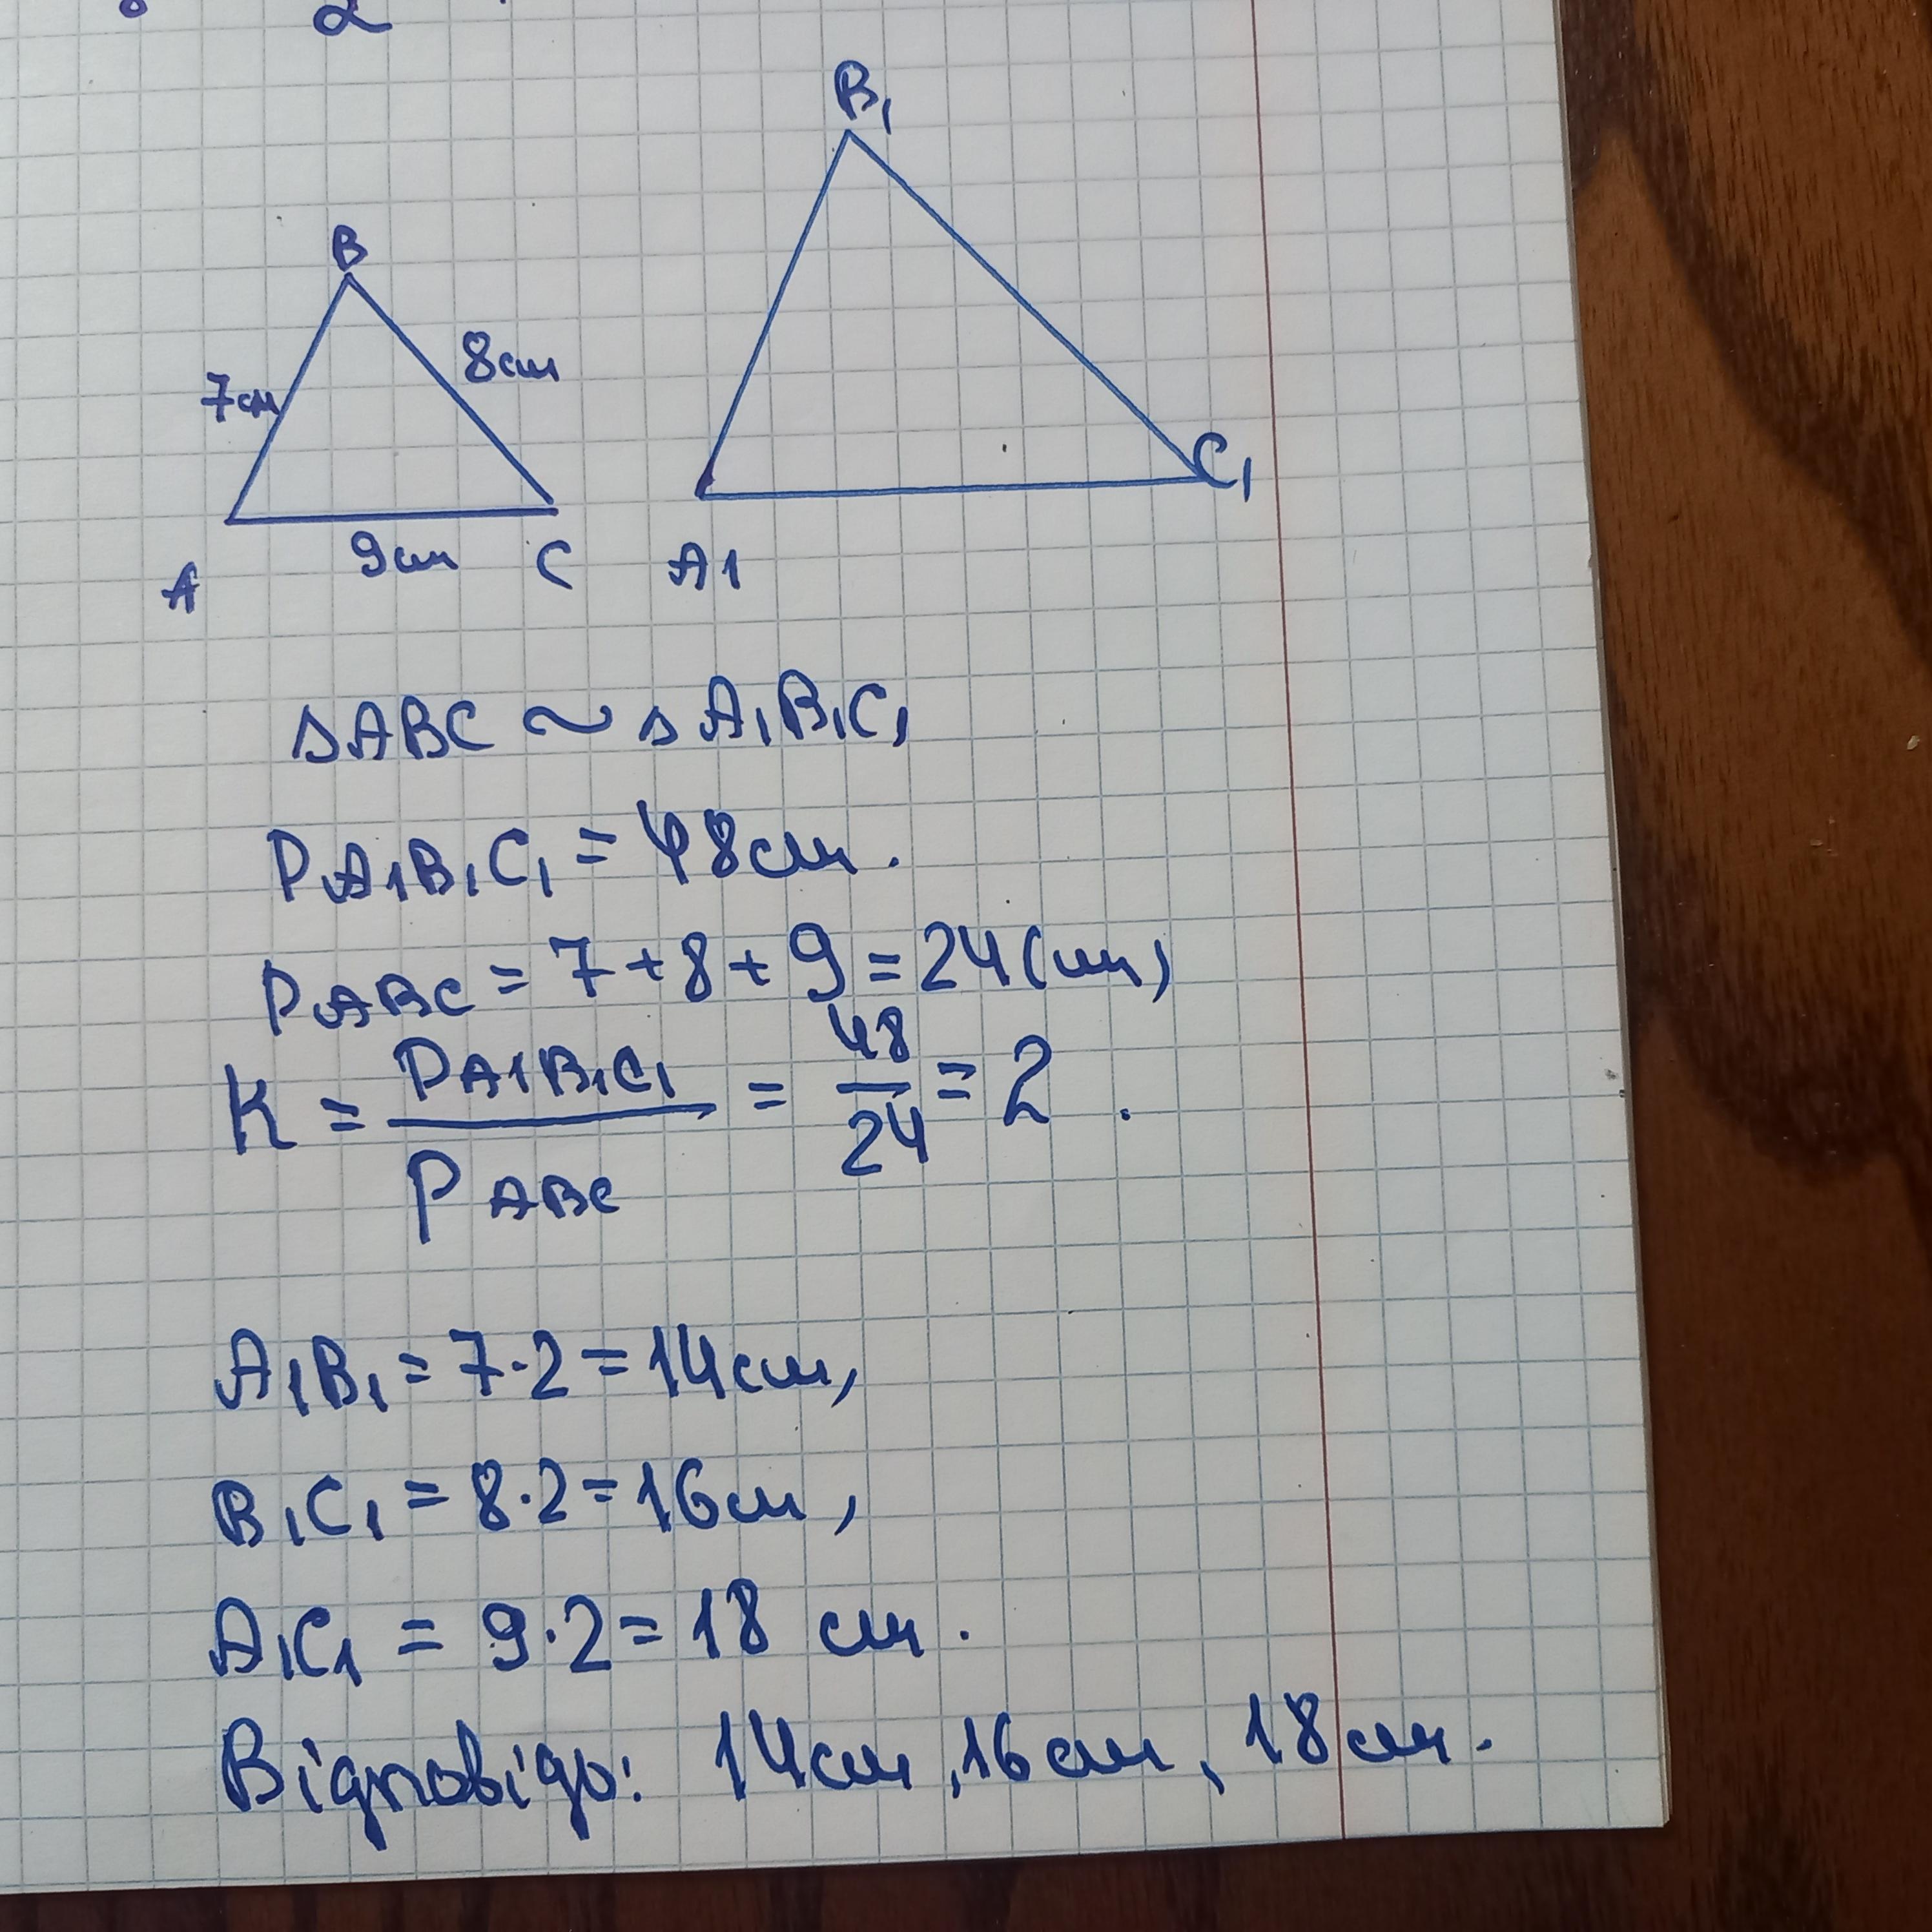 2
B₁
B
8см
7см
C₁
9см
A
C
A1
ΔABC ~ ΔA₁B₁C₁
P A₁B₁C₁ = 48см.
P ABC = 7 + 8 + 9 = 24 (см)
K = P A₁B₁C₁ / P ABC = 48/24 = 2.
A₁B₁ = 7·2 = 14см,
B₁C₁ = 8·2 = 16см,
A₁C₁ = 9·2 = 18 см.
Відповідь: 14см, 16см, 18см.